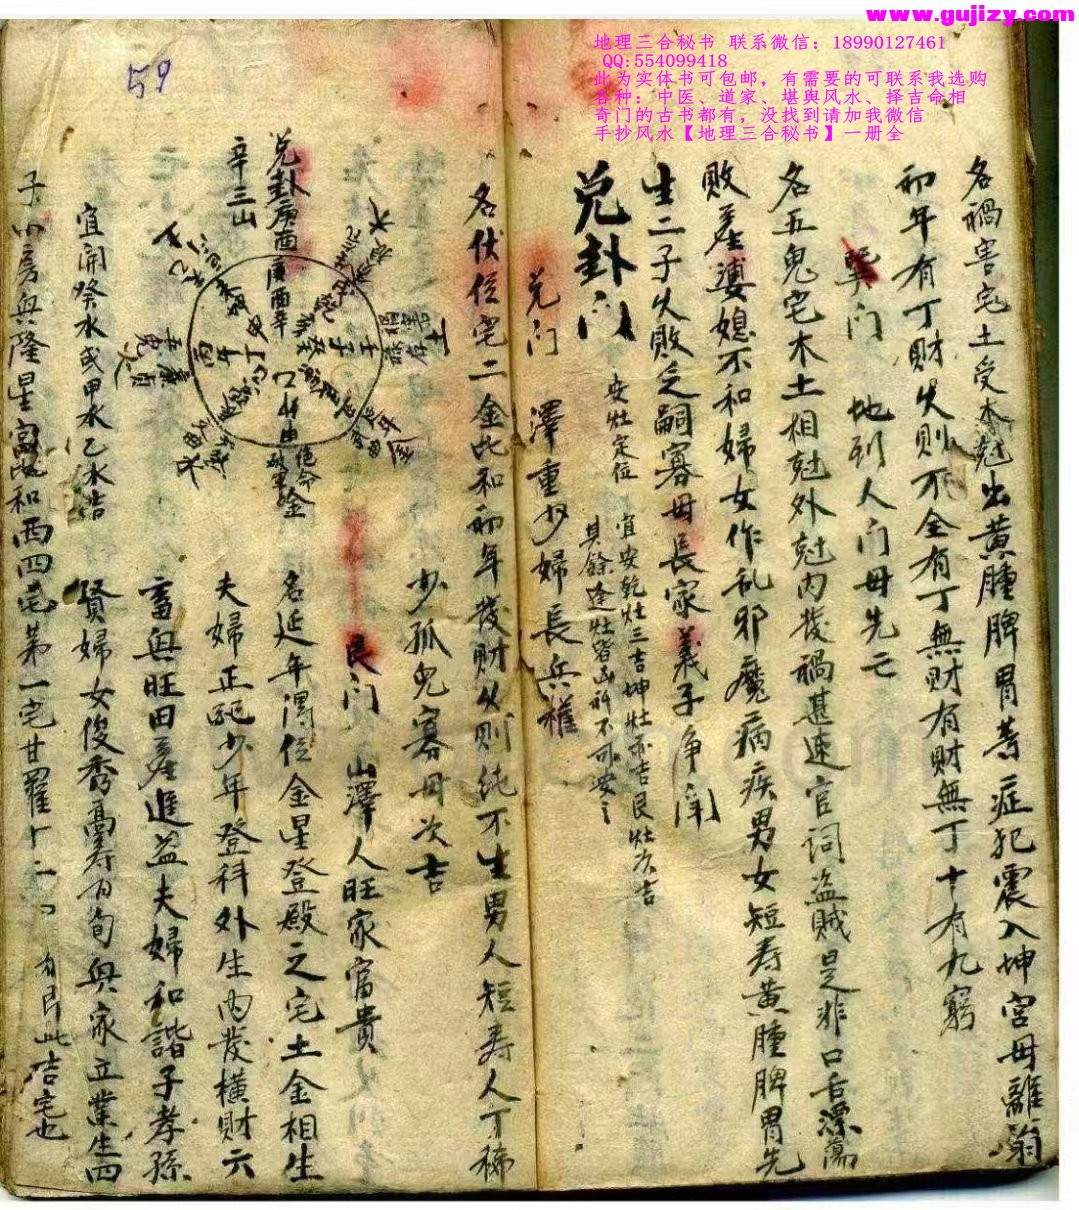 www.gujizy.com
地理三合秘书 联系微信：18990127461
QQ:554099418
此为实体书可包邮，有需要的可联系我选购
各种：中医、道家、堪舆风水、择吉命相
奇门的古书都有，没找到请加我微信
手抄风水【地理三合秘书】一册全
名禍害宅土受木尅出黄腫脾胃等症犯震入坤宮母離翁
初年有丁財久則不全有丁無財有財無丁十有九窮
巽门 地到人门母先亡
名五鬼宅木土相尅外尅内發禍甚速官词盗贼是非口舌漂蕩
敗産婆媳不和婦女作乱邪魔病疾男女短寿黄腫脾胃先
生二子久敗乏嗣寡母長家義子争闹
兑卦门
安灶定位
宜安乾灶三吉坤灶亦吉艮灶次吉
其餘逢灶皆凶
兑门 澤重少婦長兵權
名伏位宅二金比和初年發財久則純不生男人短寿人丁稀
少孤兒寡母次吉
艮门 山澤人旺家富貴
名延年
金星登殿之宅土金相生
夫婦正配少年登科外生内發横財六
畜興旺田産進益夫婦和諧子孝孫
賢婦女俊秀高寿百旬興家立業生四
子小房興隆星宫
和西四宅第一宅甘羅十二
此吉宅也
兑卦庚酉
辛三山
庚酉辛
宜開癸水或甲水乙水吉
59